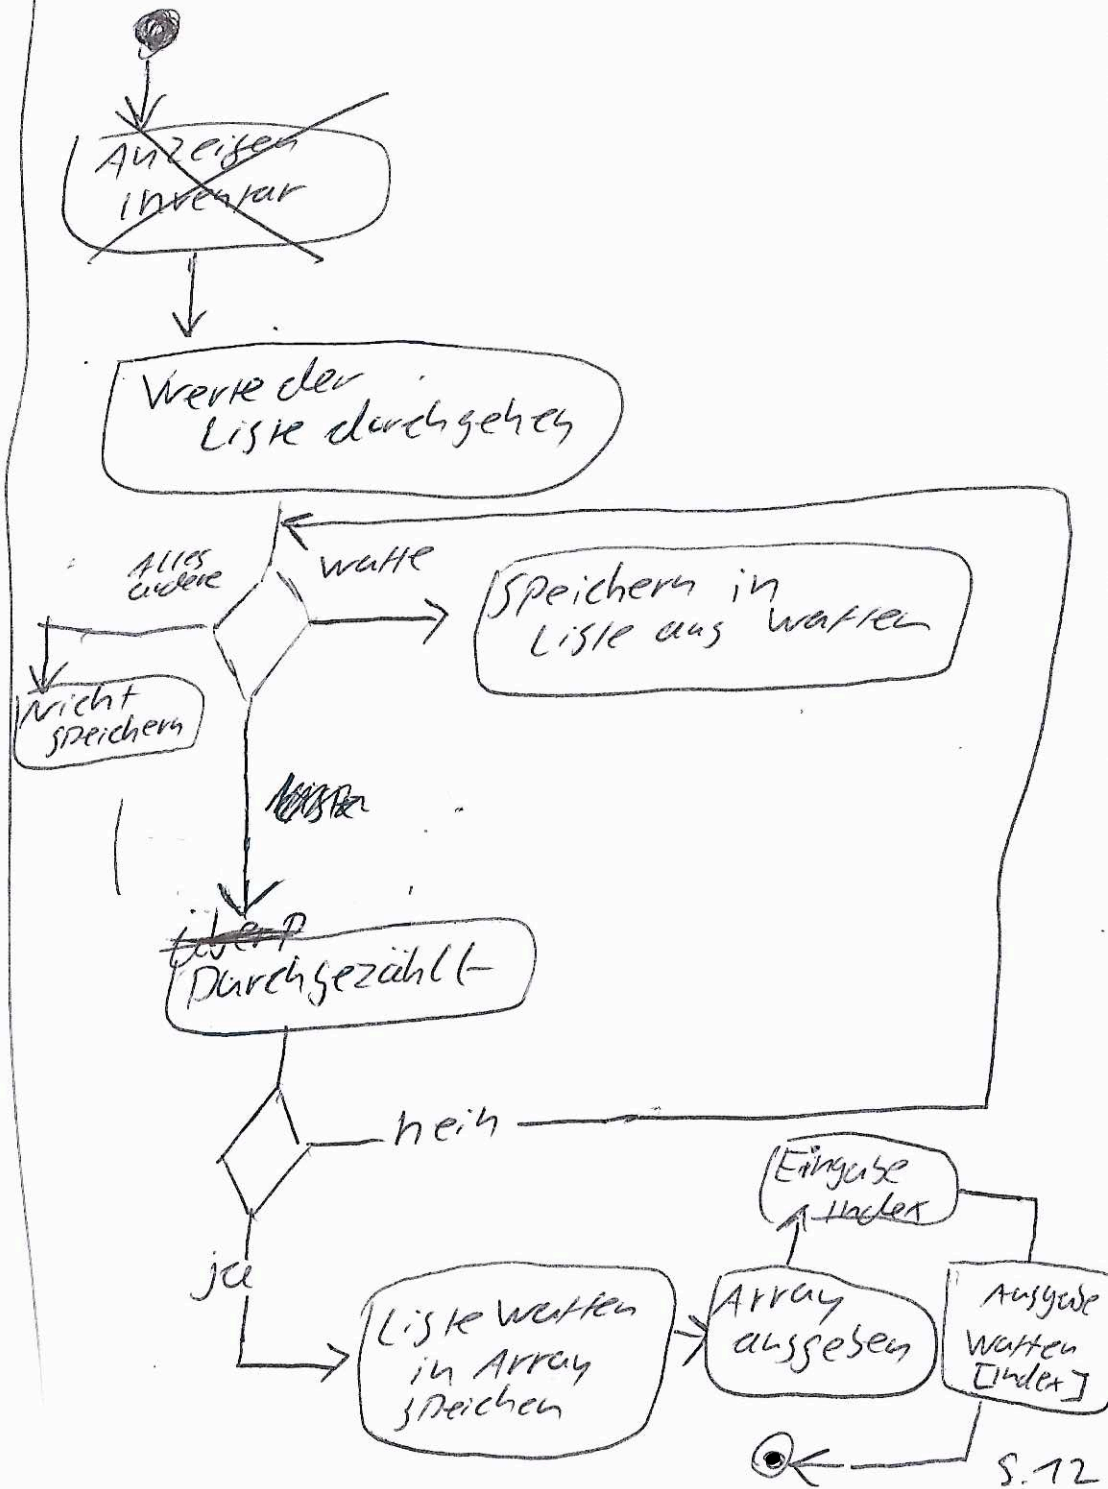 Anzeigen
inventar
Werte der
Liste durchgehen
Alles
andere
Waffe
Speichern in
Liste aus Waffen
Nicht
speichern
überp
Durchgezählt
nein
ja
Liste Waffen
in Array
speichen
Array
ausgeben
Eingabe
Index
Ausgabe
Waffen
[index]
S.12